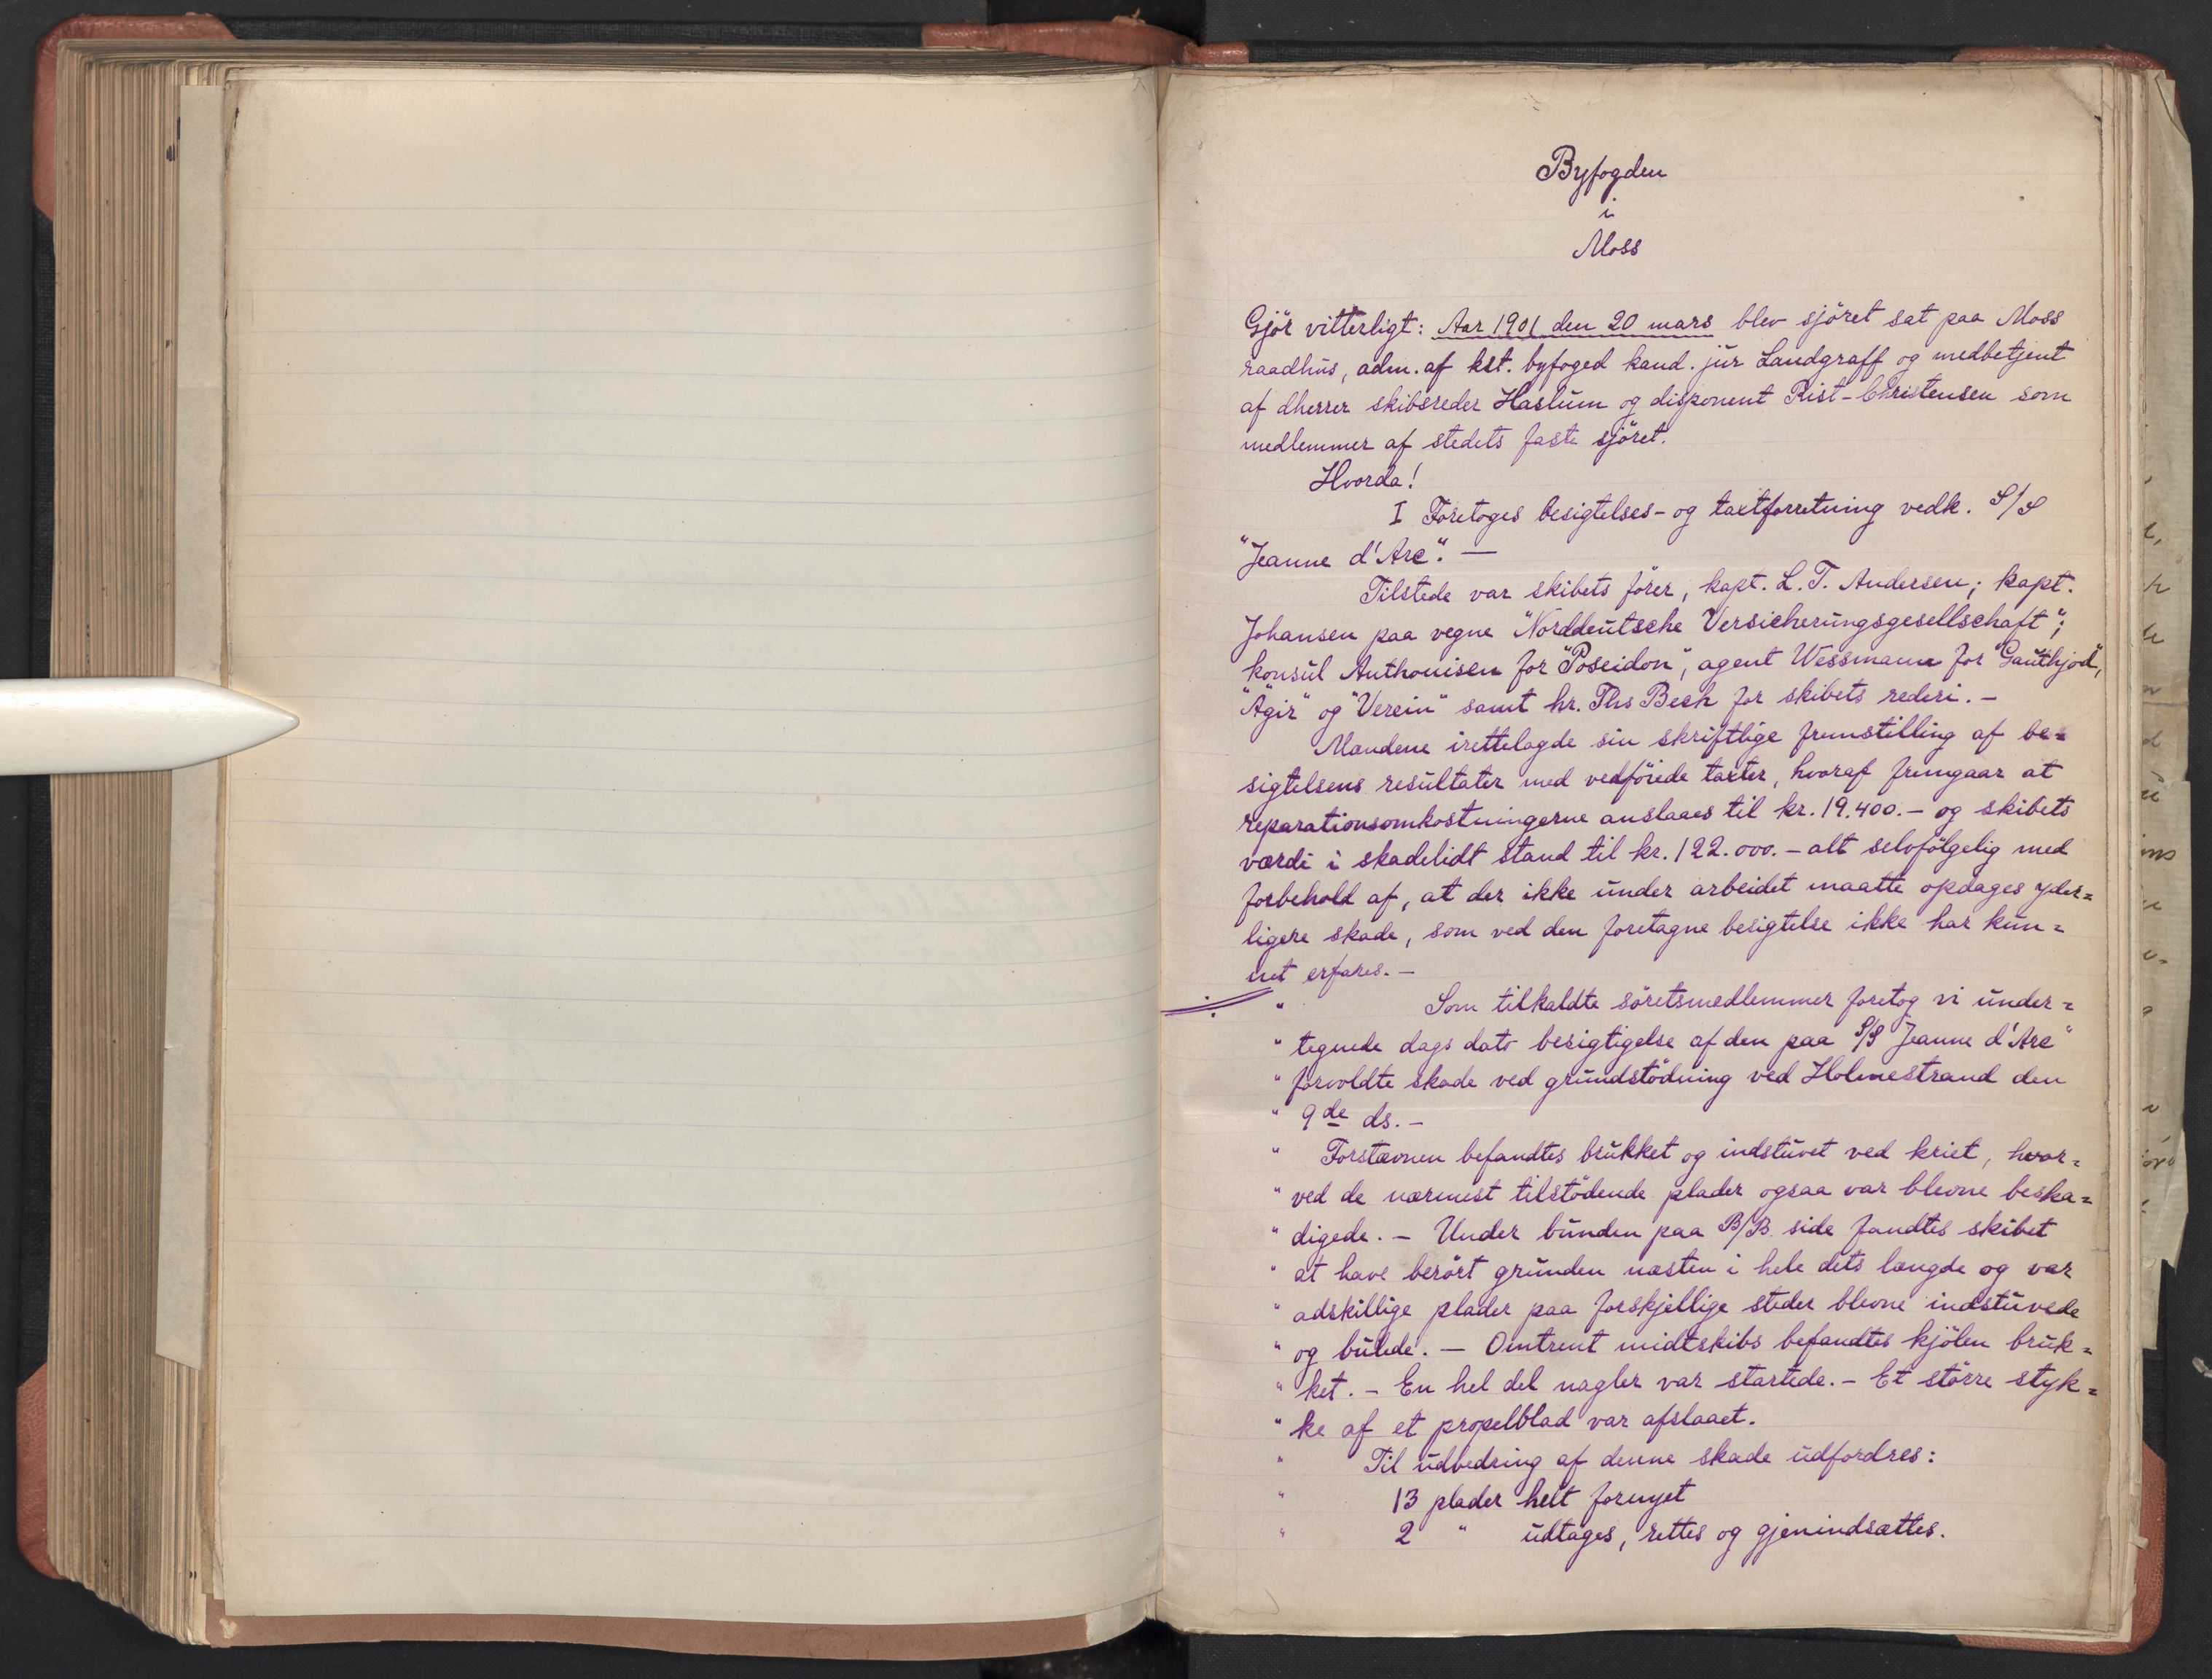 Byfogden
i
Moss
Gjör vitterligt: Aar 1901 den 20 mars blev sjöret sat paa Moss
raadhus, adm. af kst. byfoged kand. jur Landgraff og medbetjent
af dherrer skibsreder Haslum og disponent Rist-Christensen som
medlemmer af stedets faste sjöret.
Hvorda!
I Foretoges besigtelses- og taxtforretning vedk. S/S
"Jeanne d'Arc". —
Tilstede var skibets förer, kapt. L. T. Andersen; kapt.
Johansen paa vegne "Norddeutsche Versicherungsgesellschaft";
konsul Anthonisen for "Poseidon", agent Wessmann for "Gauthjod",
"Ägir" og "Verein" samt hr. Ths Bech for skibets rederi. —
Mændene irettelagde sin skriftlige fremstilling af be=
sigtelsens resultater med vedföiede taxter, hvoraf fremgaar at
reparationsomkostningerne anslaaes til kr. 19.400.— og skibets
værdi i skadelidt stand til kr. 122.000.— alt selvfölgelig med
forbehold af, at der ikke under arbeidet maatte opdages yder=
ligere skade, som ved den foretagne besigtelse ikke har kun=
net erfares. —
" Som tilkaldte söretsmedlemmer foretog vi under=
" tegnede dags dato besigtigelse af den paa S/S "Jeanne d'Arc"
" forvoldte skade ved grundstödning ved Holmestrand den
" 9de ds. —
" Forstævnen befandtes brukket og indstuvet ved kriet, hvor=
" ved de nærmest tilstödende plader ogsaa var blevne beska=
" digede. — Under bunden paa B/B side fandtes skibet
" at have berört grunden næsten i hele dets længde og var
" adskillige plader paa forskjellige steder blevne indstuvede
" og bulede. — Omtrent midtskibs befandtes kjölen bruk=
" ket. — En hel del nagler var startede. — Et större styk=
" ke af et propelblad var afslaaet.
" Til udbedring af denne skade udfordres:
" 13 plader helt fornyet
" 2 " udtages, rettes og gjenindsættes.